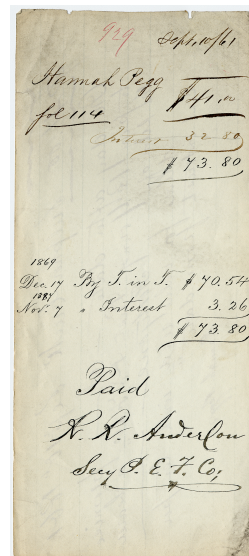 929
Sept, 10/61
Hannah Pegg $41.00
fol 114
Interest 32 80
$ 73.80
1869
Dec. 17 By T. in T. $ 70.54
1887
Nov. 7 " Interest 3.26
$ 73.80
Paid
R. R. Anderson
Secy P. E. F. Co;